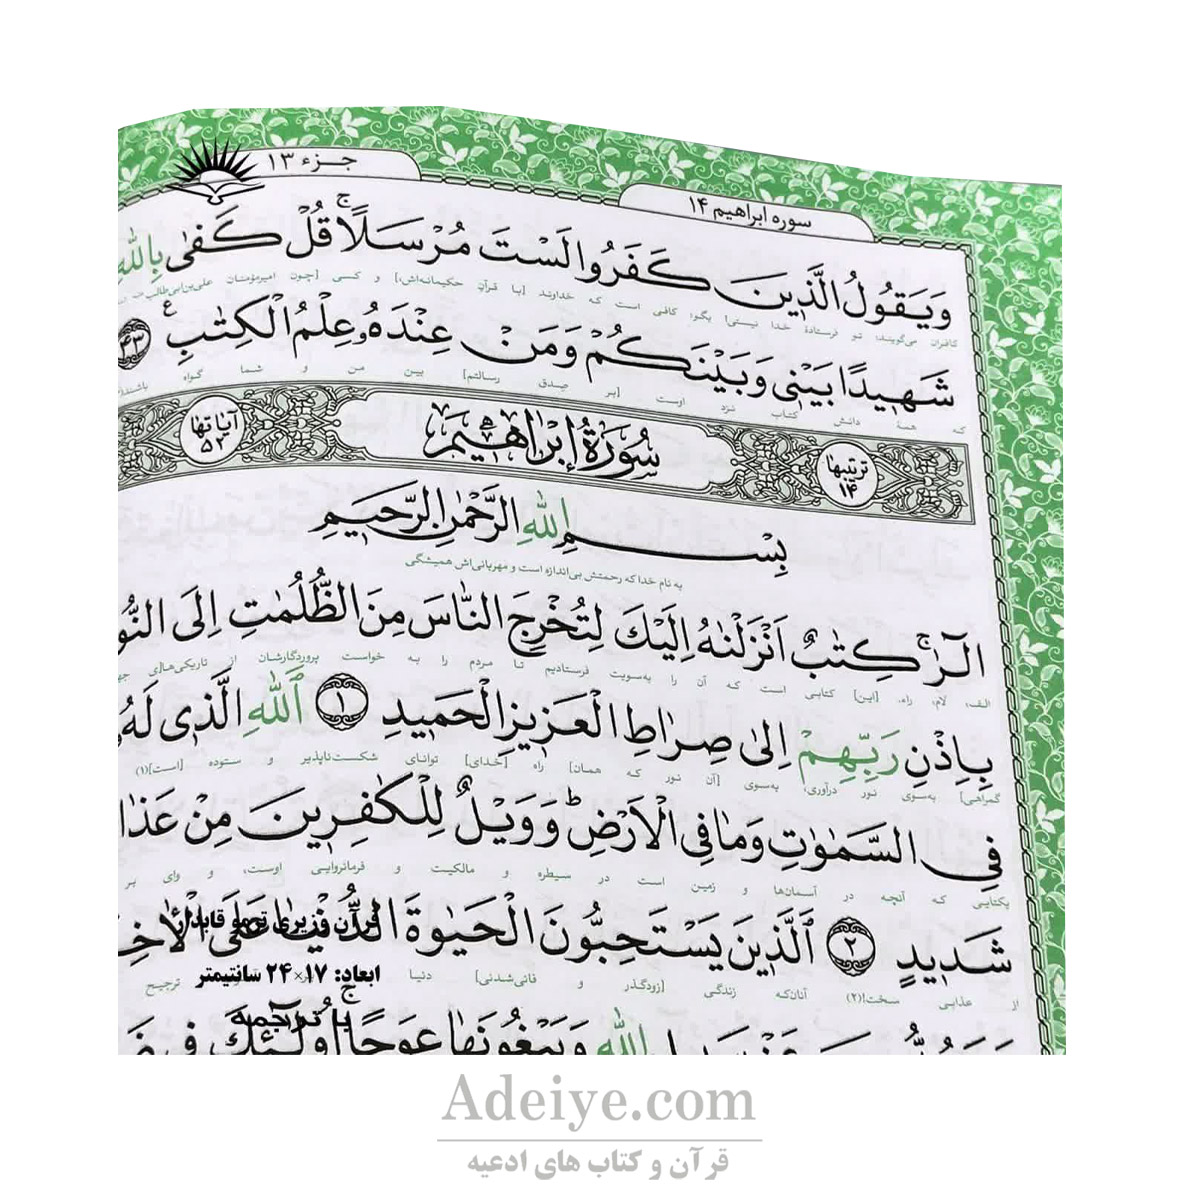 جزء ۱۳
سوره ابراهیم ۱۴
وَيَقُولُ الَّذينَ كَفَرُوا لَسْتَ مُرْسَلًاۚ قُلْ كَفىٰ بِاللّٰهِ
کافران می‌گویند: تو فرستادهٔ خدا نیستی! بگو: کافی است که خداوند [با قرآن حکیمانه‌اش،] و کسی [چون امیرمؤمنان علی‌بن‌ابی‌طالب
شَهيدًا بَيْنى وَبَيْنَكُمْ وَمَنْ عِنْدَهُ عِلْمُ الْكِتٰبِ ﴿۴۳﴾
که همهٔ دانش کتاب نزد اوست [بر صدق رسالتم] بین من و شما گواه باشند
ترتیبها ۱۴
سُورَةُ اِبْرٰاهيمَ
آیاتها ۵۲
بِسْمِ اللّٰهِ الرَّحْمٰنِ الرَّحيمِ
به نام خدا که رحمتش بی‌اندازه است و مهربانی‌اش همیشگی
الٓرٰۚ كِتٰبٌ اَنْزَلْنٰهُ اِلَيْكَ لِتُخْرِجَ النّٰاسَ مِنَ الظُّلُمٰتِ اِلَى النُّو
الف، لام، راء. [این] کتابی است که آن را به‌سویت فرستادیم تا مردم را به خواست پروردگارشان از تاریکی‌ها[ی
بِاِذْنِ رَبِّهِمْ اِلىٰ صِرٰاطِ الْعَزيزِ الْحَميدِ ﴿۱﴾ اَللّٰهِ الَّذى لَهُ
گمراهی] به‌سوی نور درآوری؛ به‌سوی [آن نور که همان] راه [خدای] توانای شکست‌ناپذیر و ستوده [است](۱)
فِى السَّمٰوٰتِ وَمٰا فِى الْاَرْضِؕ وَوَيْلٌ لِلْكٰفِرينَ مِنْ عَذٰا
یکتایی که آنچه در آسمان‌ها و زمین است در سیطره و مالکیت و فرمانروایی اوست، و وای بر
شَديدٍ ﴿۲﴾ اَلَّذينَ يَسْتَحِبُّونَ الْحَيٰوةَ الدُّنْيٰا عَلَى الْاٰخِ
از عذابی سخت!(۲) آنان‌که زندگی [زودگذر و فانی‌شدنی] دنیا ترجیح
اللّٰهِ وَيَبْغُونَهٰا عِوَجًاۚ اُولٰٓئِكَ فى ضَ
قرآن وزیری ترمو قابدار
ابعاد: ۱۷×۲۴ سانتیمتر
با ترجمه
Adeiye.com
قرآن و کتاب های ادعیه